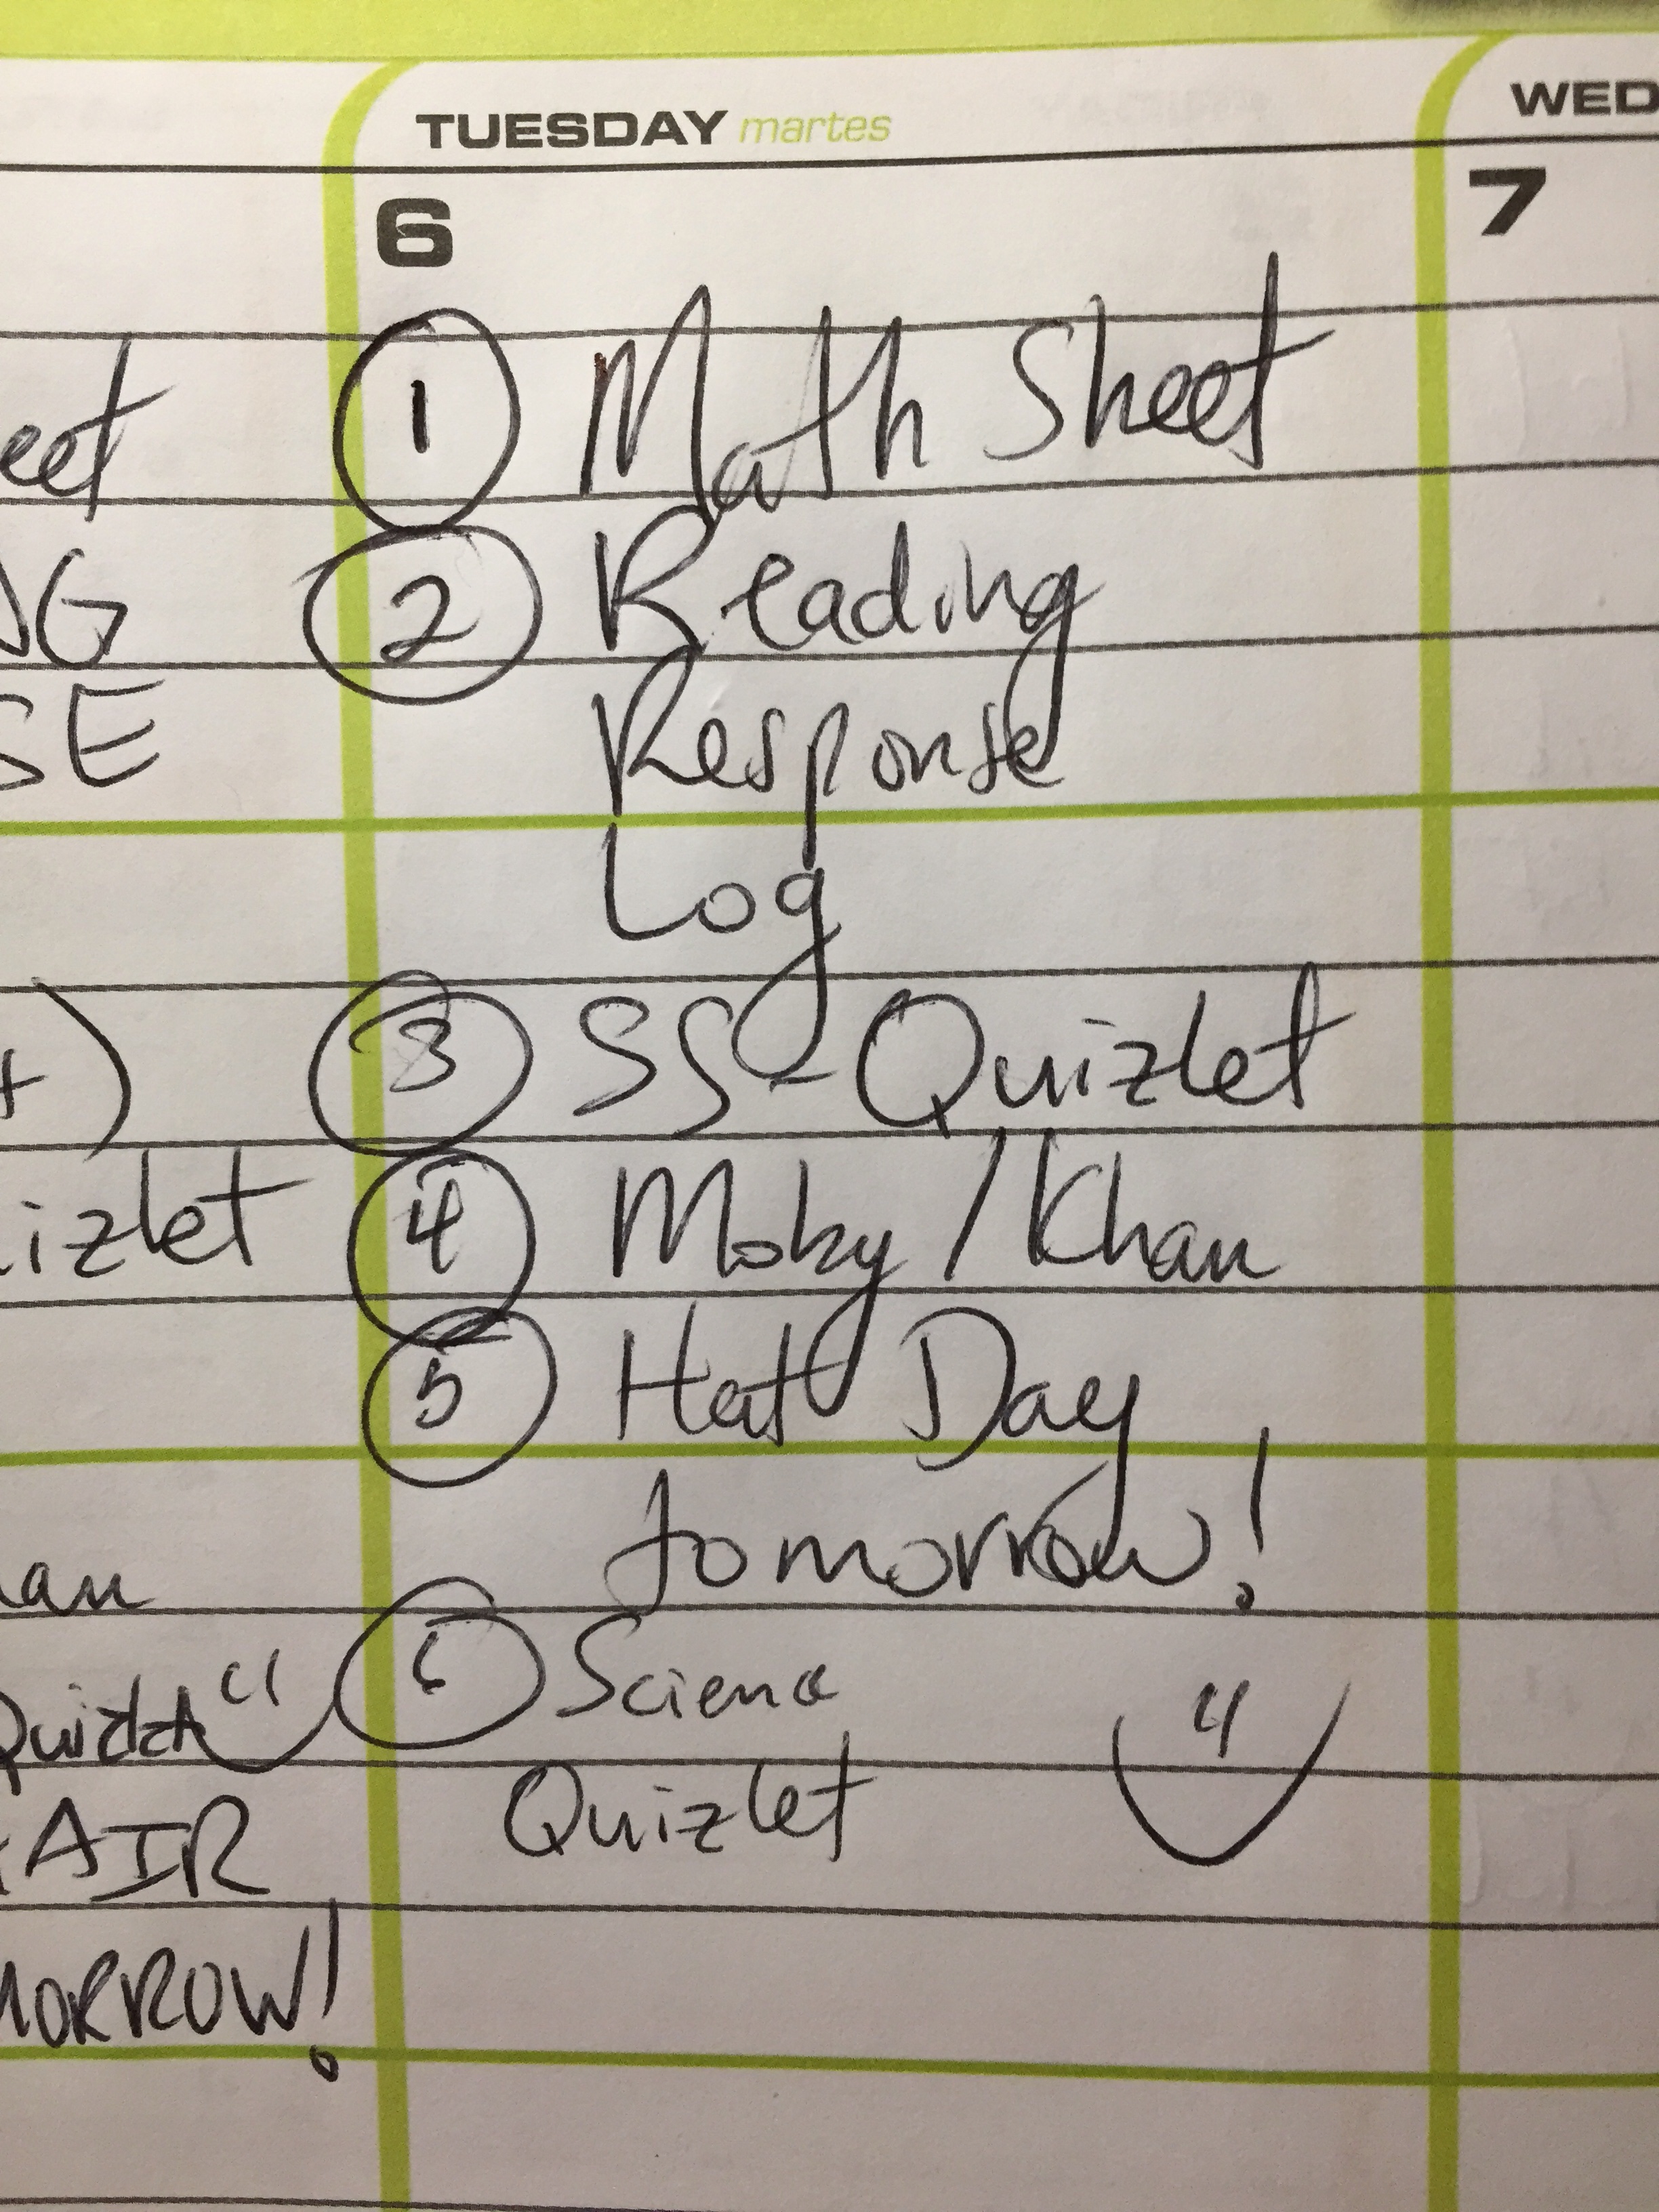 TUESDAY martes
WED
6
7
1 Math Sheet
2 Reading
Response
Log
3 SS - Quizlet
4 Moby / Khan
5 Hat Day
tomorrow!
6 Science
Quizlet
eet
NG
SE
t)
izlet
han
Quizlet
FAIR
MORROW!